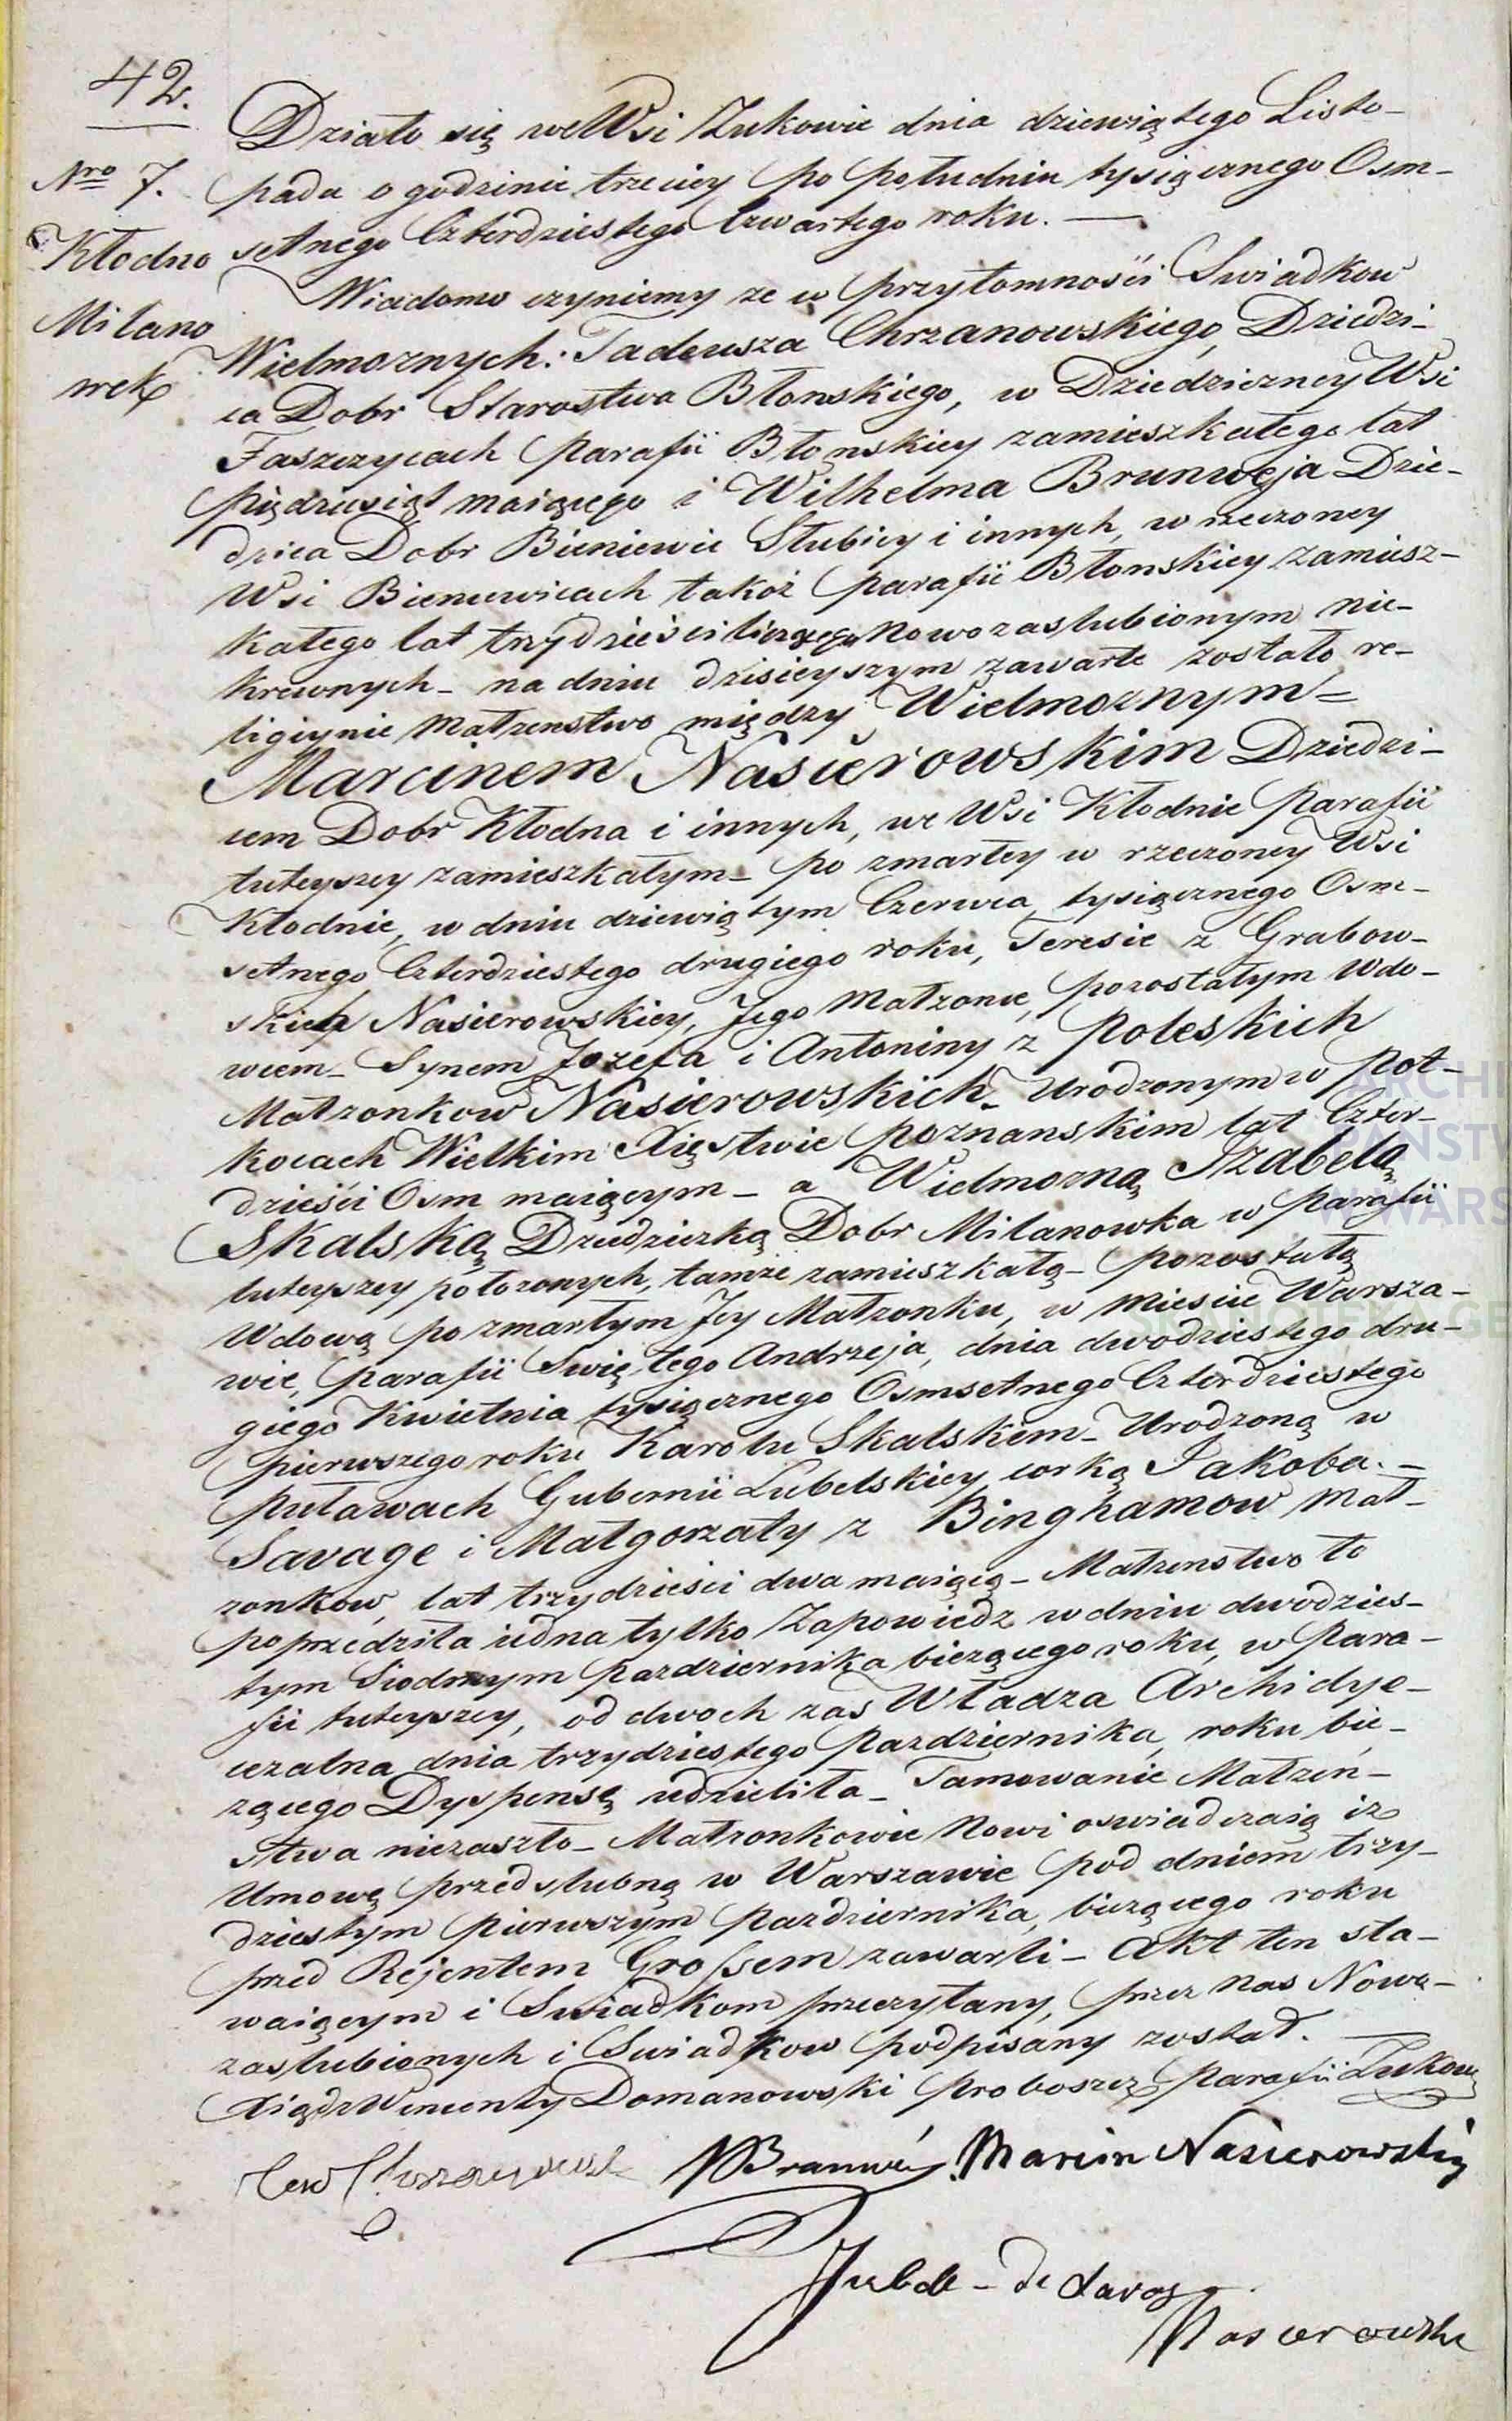 42.
Działo się we Wsi Żukowie dnia dziewiątego Listo-
Nro 7. pada o godzinie trzeciey po południu tysiącznego Osm-
Kłodno setnego Czterdziestego Czwartego roku. —
Wiadomo czyniemy ze w przytomności Swiadkow
Milano
wek
Wielmoznych: Tadeusza Chrzanowskiego, Dziedzi-
ca Dobr Starostwa Błonskiego, w Dziedziczney Wsi
Faszczycach parafii Błonskiey zamieszkałego lat
pięździesiąt maiącego i Wilhelma Brunweja Dzie-
dzica Dobr Bieniewic Słubicy i innych, w rzeczoney
Wsi Bieniewicach takoż parafii Błonskiey zamiesz-
kałego lat trzydzieści liczącego Nowozaslubionym nie-
krewnych - na dniu dzisieyszym zawarte zostało re-
ligiynie Małzenstwo między Wielmoznym =
Marcinem Nasierowskim Dziedzi-
cem Dobr Kłodna i innych, we Wsi Kłodnie parafii
tuteyszey zamieszkałym - po zmarłey w rzeczoney Wsi
Kłodnie, w dniu dziewiątym Czerwca tysiącznego Osm-
setnego Czterdziestego drugiego roku, Teresie z Grabow-
skich Nasierowskiey, Jego Małzonce, pozostałym Wdo-
wcem - Synem Jozefa i Antoniny z Poleskich
Małzonkow Nasierowskich - Urodzonym w Pot-
kocach Wielkim Xięstwie poznanskim lat Czter-
dzieści Osm maiącym - a Wielmozną Izabelą
Skalską Dziedziczką Dobr Milanowka w parafii
tuteyszey połozonych, tamze zamieszkałą - pozostałą
Wdową po zmarłym Jey Małzonku, w Miescie Warsza-
wie, parafii Swiętego Andrzeja, dnia dwodziestego dru-
giego Kwietnia tysiącznego Osmsetnego Czterdziestego
pierwszego roku Karolu Skalskim - Urodzoną w
Puławach Gubernii Lubelskiey corką Jakoba. —
Savage i Małgorzaty z Binghamow Mał-
zonkow, lat trzydzieści dwa maiącą - Małzenstwo to
poprzedziła iedna tylko Zapowiedz w dniu dwodzies-
tym Siodmym pazdziernika biezącego roku, w para-
fii tuteyszey, od dwoch zas Władza Archidye-
cezalna dnia trzydziestego Pazdziernika, roku bie-
zącego Dyspensę udzieliła - Tamowanie Małzen-
stwa niezaszło - Małzonkowie Nowi oswiadczaią iz
Umowę przedslubną w Warszawie pod dniem trzy-
dziestym pierwszym Pazdziernika, biezącego roku
przed Rejentem Grossem zawarli - Akt ten sta-
waiącym i Swiadkom przeczytany, przez nas Nowo-
zaslubionych i Swiadkow podpisany został. —
Xiądz Wincenty Domanowski proboszcz parafii Żukow
Marcin Nasierowski
de Savage
Nasierowska
ARCHI
PAŃSTW
W WARS
SKANOTEKA GE